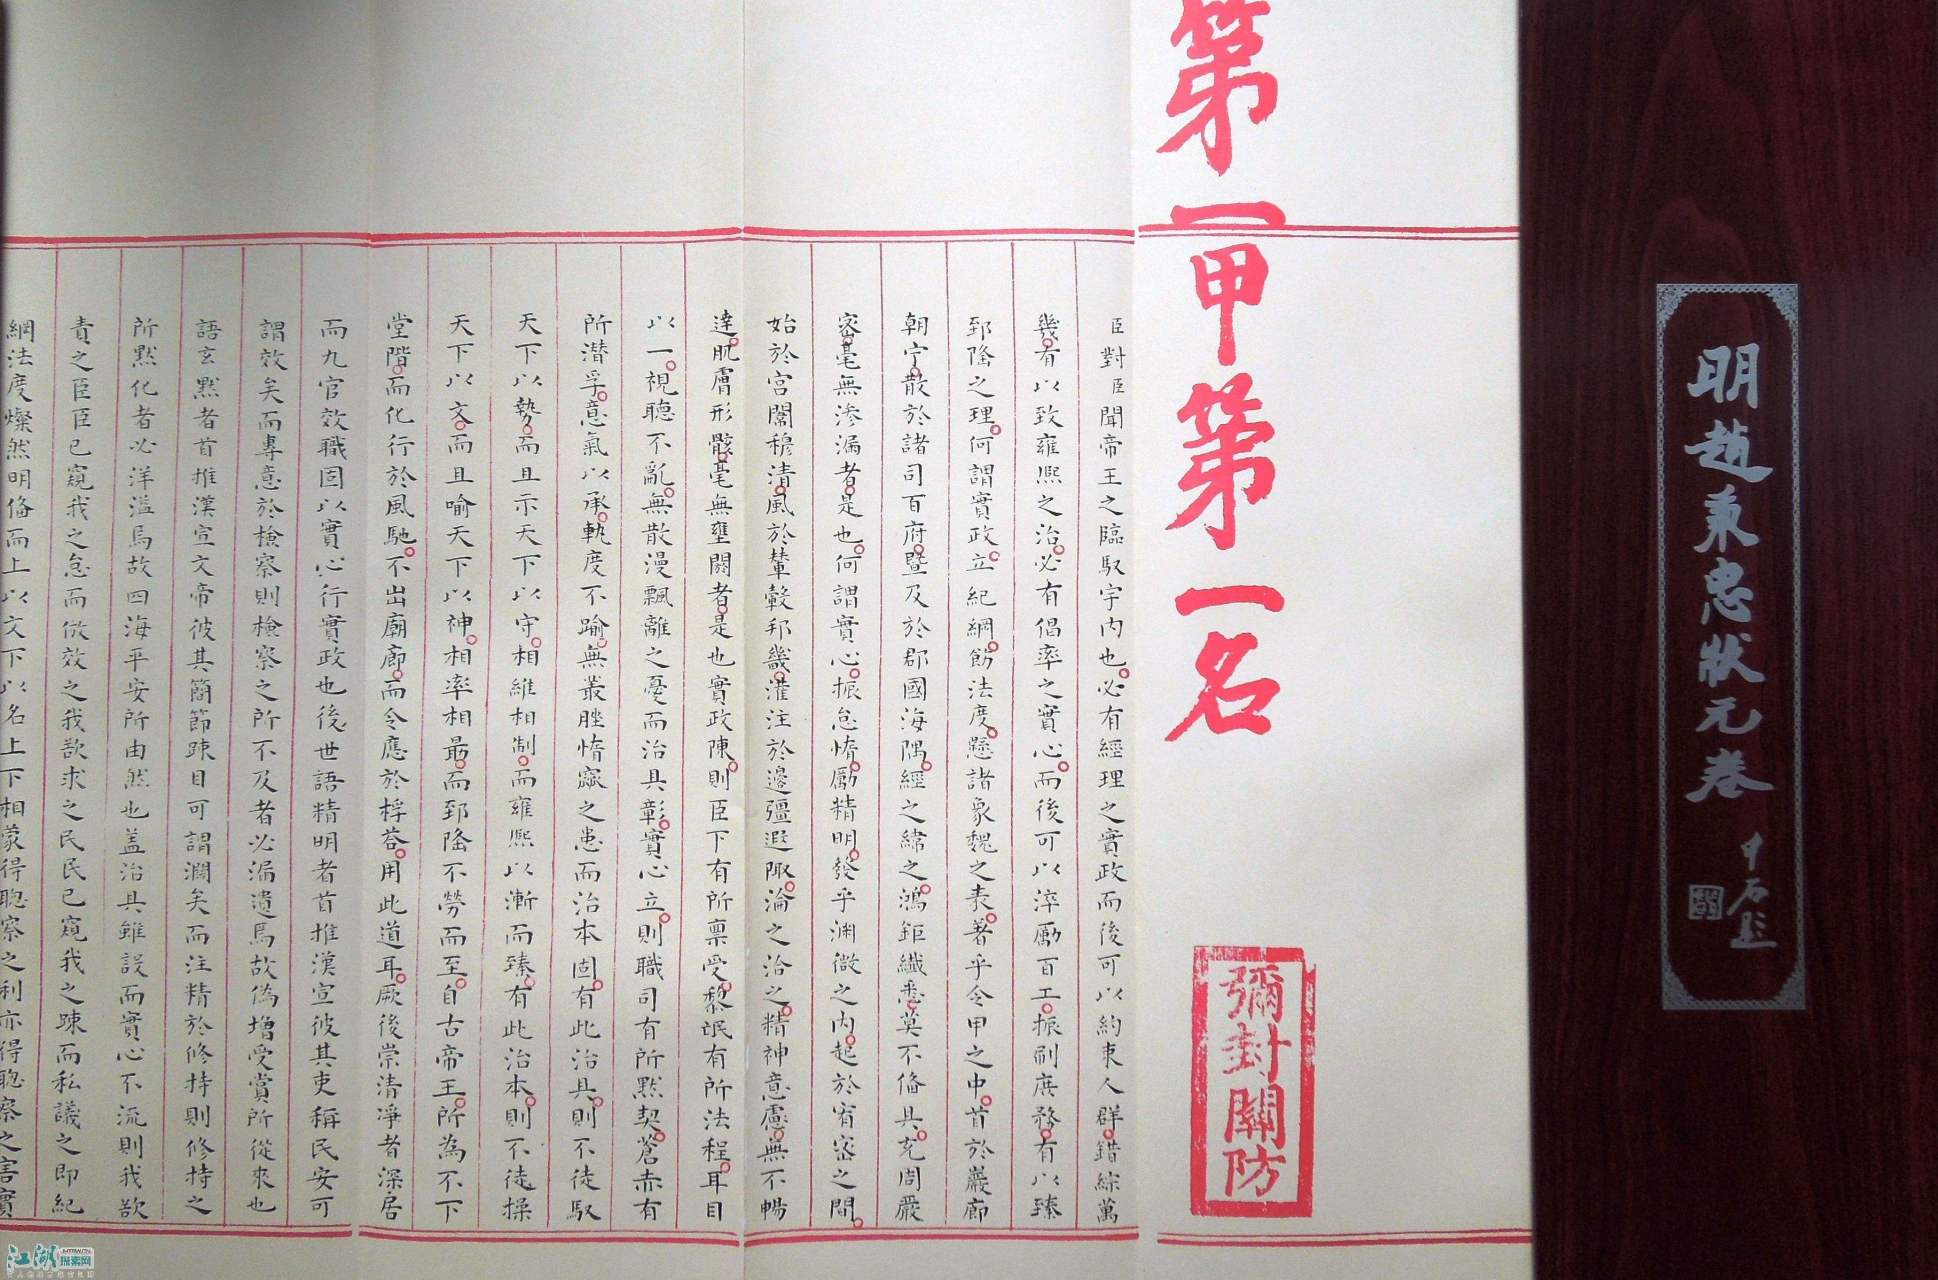 明趙秉忠狀元卷
中石題
第一甲第一名
彌封關防
臣對臣聞帝王之臨馭宇內也必有經理之實政而後可以約束人群錯綜萬
幾有以致雍熙之治必有倡率之實心而後可以淬勵百工振刷庶務有以臻
郅隆之理何謂實政立紀綱飭法度懸諸象魏之表著乎令甲之中首於巖廊
朝宁散於諸司百府暨及於郡國海隅經之緯之鴻鉅纖悉莫不備具充周嚴
密毫無滲漏者是也何謂實心振怠惰勵精明發乎淵微之內起於宥密之間
始於宮闈穆清風於輦轂邦畿灌注於邊彊遐陬淪之洽之精神意慮無不暢
達肌膚形骸毫無壅閼者是也實政陳則臣下有所稟受黎氓有所法程耳目
以一視聽不亂無散漫飄離之憂而治具彰實心立則職司有所默契蒼赤有
所潛孚意氣以承軌度不踰無叢脞惰窳之患而治本固有此治具則不徒馭
天下以勢而且示天下以守相維相制而雍熙以漸而臻有此治本則不徒操
天下以文而且喻天下以神相率相最而郅隆不勞而至自古帝王所為不下
堂階而化行於風馳不出廟廊而令應於桴荅用此道耳厥後崇清凈者深居
而九官效職固以實心行實政也後世語精明者首推漢宣彼其吏稱民安可
謂效矣而專意於檢察則檢察之所不及者必漏遺焉故偽增受賞所從來也
語玄默者首推漢宣文帝彼其簡節疎目可謂濶矣而注精於修持則修持之
所默化者必洋溢焉故四海平安所由然也盖治具雖設而實心不流則我欲
責之臣臣已窺我之怠而倣效之我欲求之民民已窺我之疎而私議之即紀
綱法度燦然明備而上以文下以名上下相蒙得聰察之利亦得聰察之害實
江湖
探索网